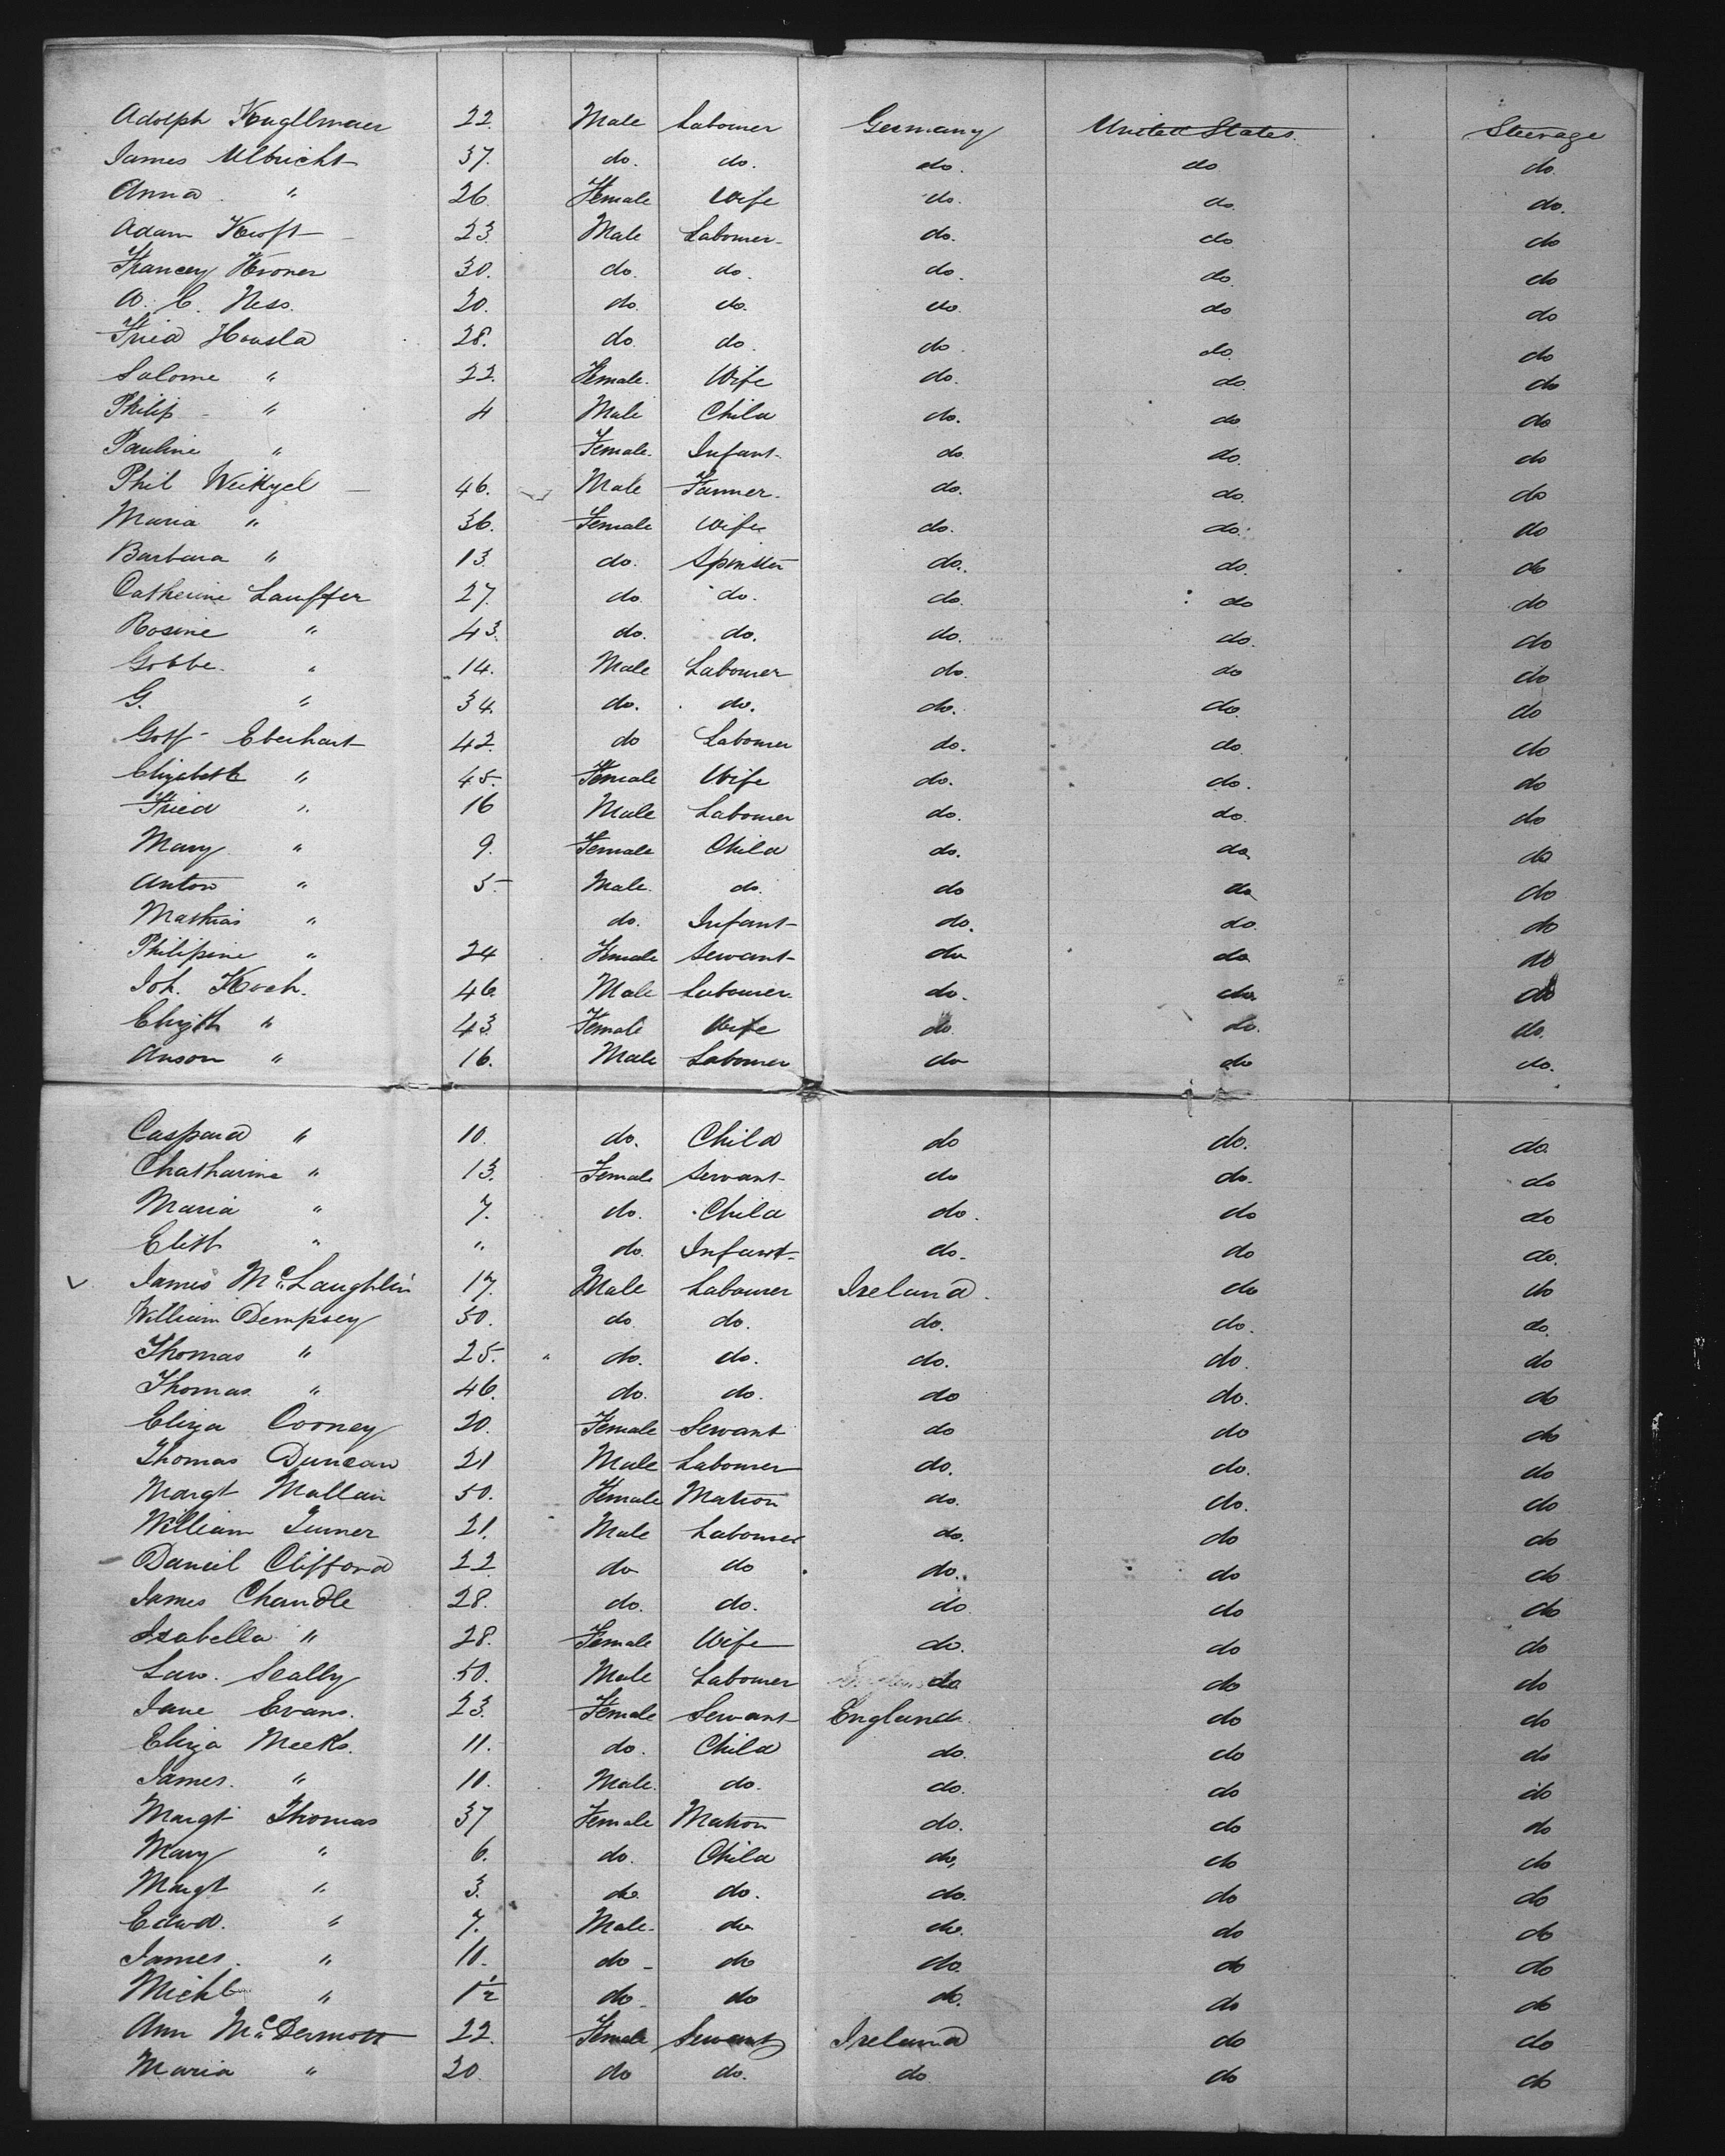 Adolph Kugllmaer 22. Male Labourer Germany United States. Steerage
James Ulbricht 37. do. do. do. do do.
Anna " 26. Female Wife do. do. do.
Adam Kroft 23. Male Labourer do. do do
Francey Kroner 30. do. do. do. do. do
A. C. Ness. 20. do. do. do. do do
Fried Housla 28. do. do. do. do. do
Salome " 22. Female. Wife do. do. do
Philip " 4 Male Child do. do do
Pauline " Female. Infant do. do. do
Phil Weikgel 46. Male Farmer. do. do. do
Maria " 36. Female Wife do. do. do
Barbara " 13. do. Spinster do. do. do
Catherine Lauffer 27. do. do. do. do do
Rosine " 43. do. do. do. do. do
Gobbe. " 14. Male Labourer do. do do
G. " 34. do. do. do. do. do
Gotf Eberhart 42. do Labourer do. do. do
Elizabeth " 45. Female Wife do. do. do
Fried " 16 Male Labourer do. do. do
Mary " 9. Female Child do. do. do
Anton " 5. Male. do. do do do
Mathias " do. Infant do. do. do
Philipine " 24 Female Servant do do do
Joh. Koch. 46. Male Labourer. do. do. do
Elizth " 43. Female Wife do. do. do.
Anson " 16. Male Labourer do do do.
Caspard " 10. do. Child do do. do.
Chatharine " 13. Female Servant do do. do
Maria " 7. do. Child do. do do
Elisth " " do. Infant do. do do.
James McLaughlin 17. Male Labourer Ireland. do do
William Dempsey 50. do. do. do. do. do.
Thomas " 25. do. do. do. do. do
Thomas " 46. do. do. do do. do
Eliza Cooney 20. Female Servant do do do
Thomas Duncan 21 Male Labourer do. do. do
Margt Mallan 50. Female Matron do. do. do
William Turner 21. Male Labourer do. do do
Daneil Clifford 22 do do do. do do
James Chandle 28. do. do. do do do
Isabella " 28. Female Wife do. do do
Law. Scally 50. Male Labourer do do do
Jane Evans. 23. Female Servant England. do do
Eliza Meeks. 11. do. Child do. do do
James. " 10. Male. do. do. do do
Margt Thomas 37 Female Matron do. do do
Mary " 6. do. Child do, do do
Margt " 3. do do. do. do do
Edwd. " 7. Male. do do. do do
James. " 10. do do do. do do
Michl " 1½ do do do. do do
Ann McDermott 22. Female Servant Ireland do do
Maria " 20. do do. do do do